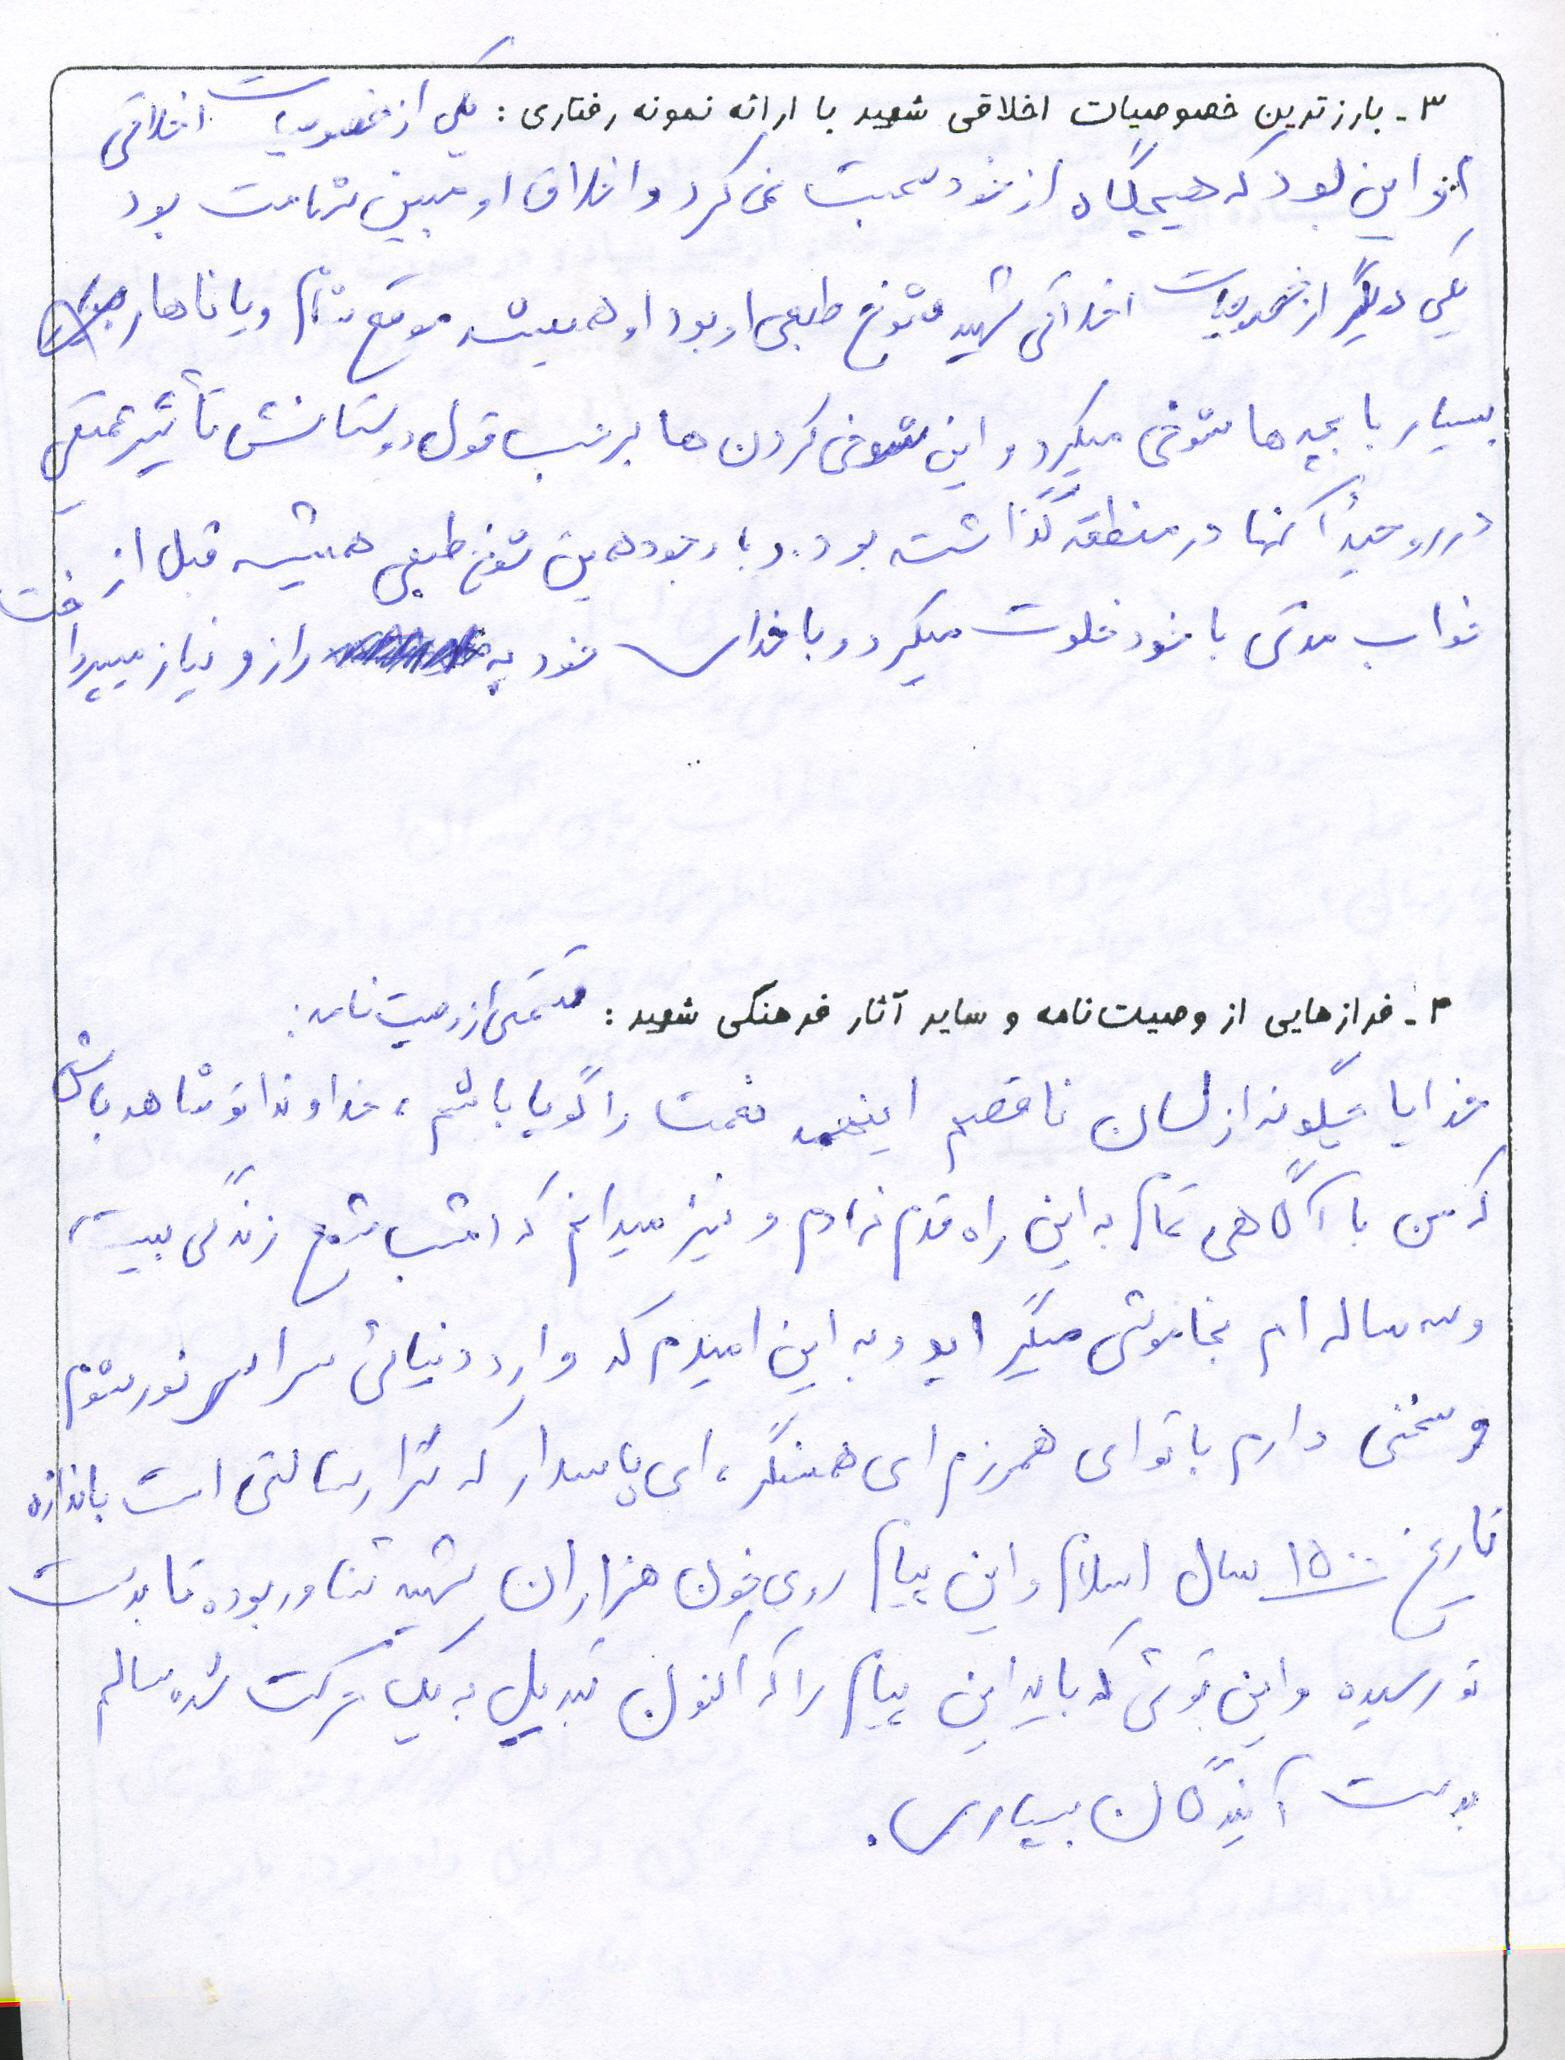 ۳ - بارزترین خصوصیات اخلاقی شهید با ارائه نمونه رفتاری : یکی از خصوصیات اخلاقی
او این بود که هیچگاه از خود صحبت نمی کرد و اخلاق او مبین شهامت بود
یکی دیگر از خصوصیات اخلاقی شهید شوخ طبعی او بود او همیشه موقع شام و یا ناهار
بسیار با بچه ها شوخی میکرد و این شوخی کردن ها بر حسب قول دوستانش تأثیر عمیقی
در روحیه آنها در منطقه گذاشته بود. و با وجود همین شوخ طبعی همیشه قبل از
خواب مدتی با خود خلوت میکرد و با خدای خود به راز و نیاز میپرداخت
۴ - فرازهایی از وصیت‌نامه و سایر آثار فرهنگی شهید : قسمتی از وصیت نامه :
خدایا چگونه از لسان ناقصم اینهمه نعمت را گویا باشم ، خداوندا تو شاهد باش
که من با آگاهی تمام به این راه قدم نهادم و نیز میدانم که امشب شمع زندگی بیست
و سه ساله ام بخاموشی میگراید و به این امیدم که وارد دنیائی سراسر نور شوم
و سخنی دارم با تو ای همرزم ای همسنگر ، ای پاسدار که ترا رسالتی است باندازه
تاریخ ۱۵۰۰ سال اسلام و این پیام روی خون هزاران شهید شناور بوده تا بدست
تو رسیده و این توئی که باید این پیام را که اکنون تبدیل به یک حرکت شده سالم
بدست آیندگان بسپاری .